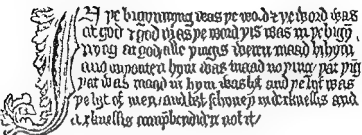 In þe bigynnyng was þe word & þe word was
at god & god was þe word þis was in þe bigyn
nyng at god alle þingis weren maad bi hym
and wiþouten hym was maad no þing / þat þig
þat was maad in hym was lyf and þe lyf was
þe lyȝt of men / and lyȝt schyneþ in derknessis and
derknessis not it /